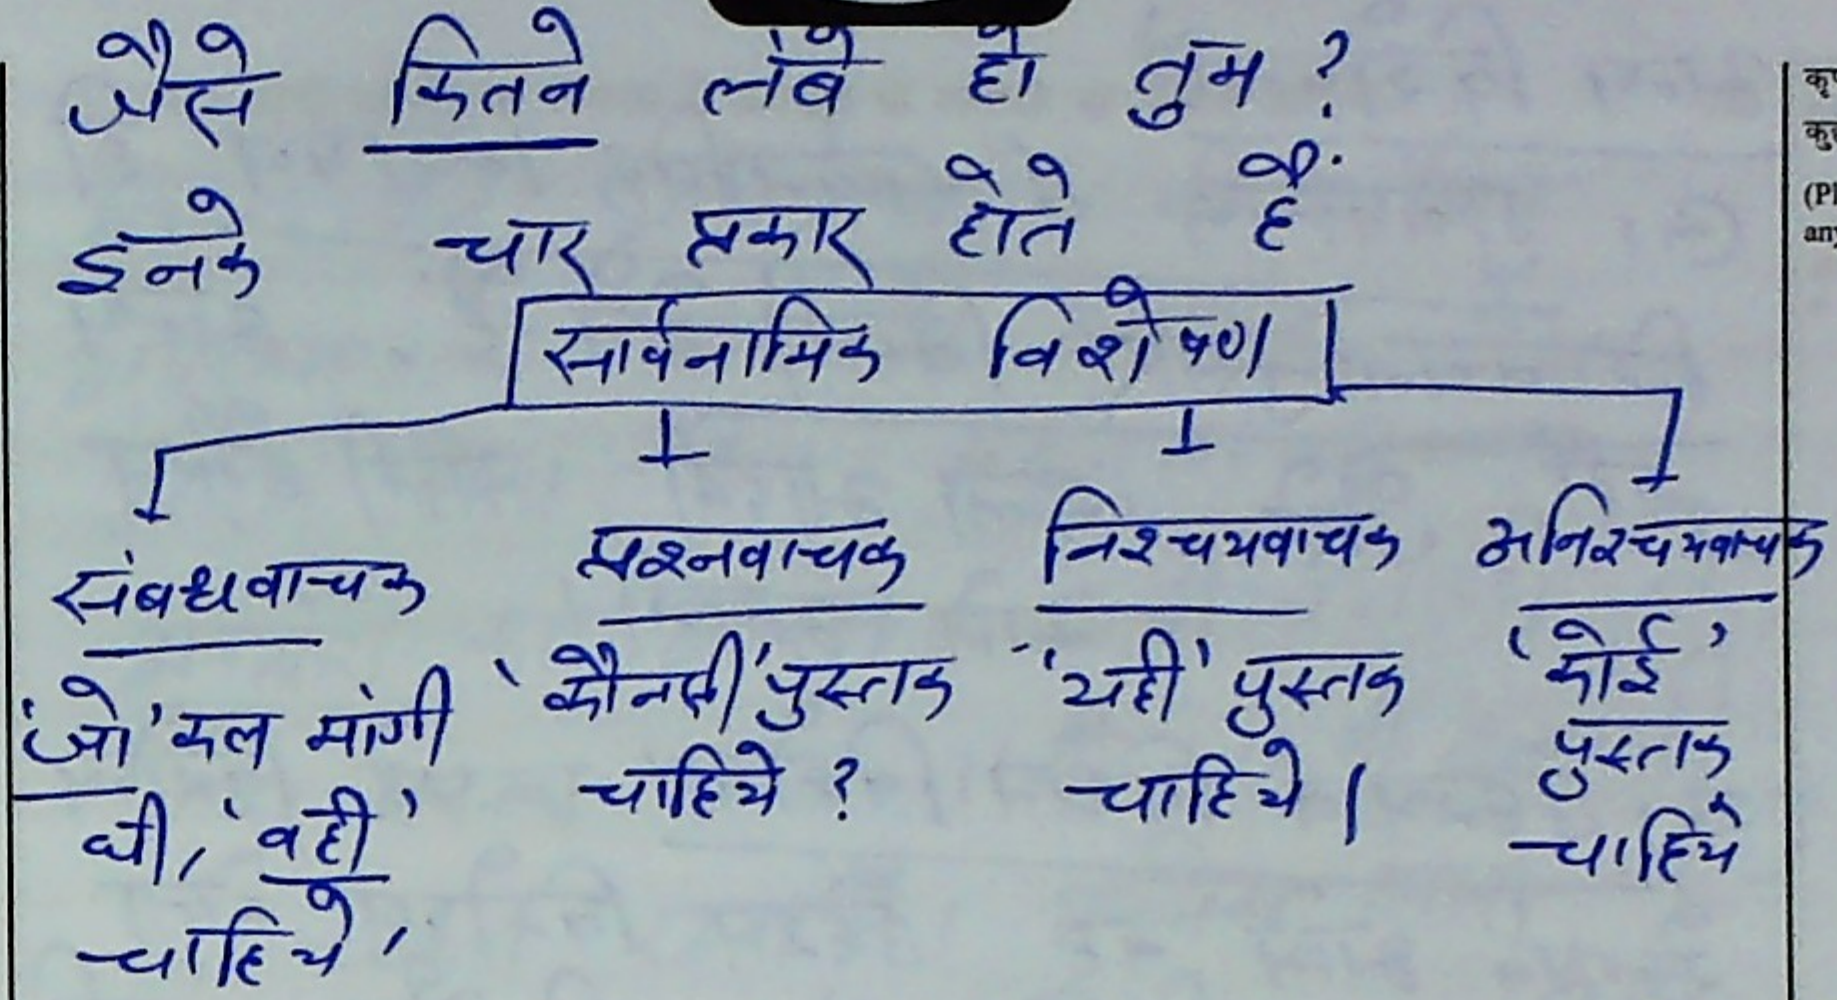 जैसे कितने लंबे हो तुम ?
इनके चार प्रकार होते हैं
सार्वनामिक विशेषण
संबधवाचक
'जो' कल मांगी
थी, 'वही'
चाहिये,
प्रश्नवाचक
'कौनसी' पुस्तक
चाहिये ?
निश्चयवाचक
'यही' पुस्तक
चाहिये।
अनिश्चयवाचक
'कोई'
पुस्तक
चाहिये
(Pl
any